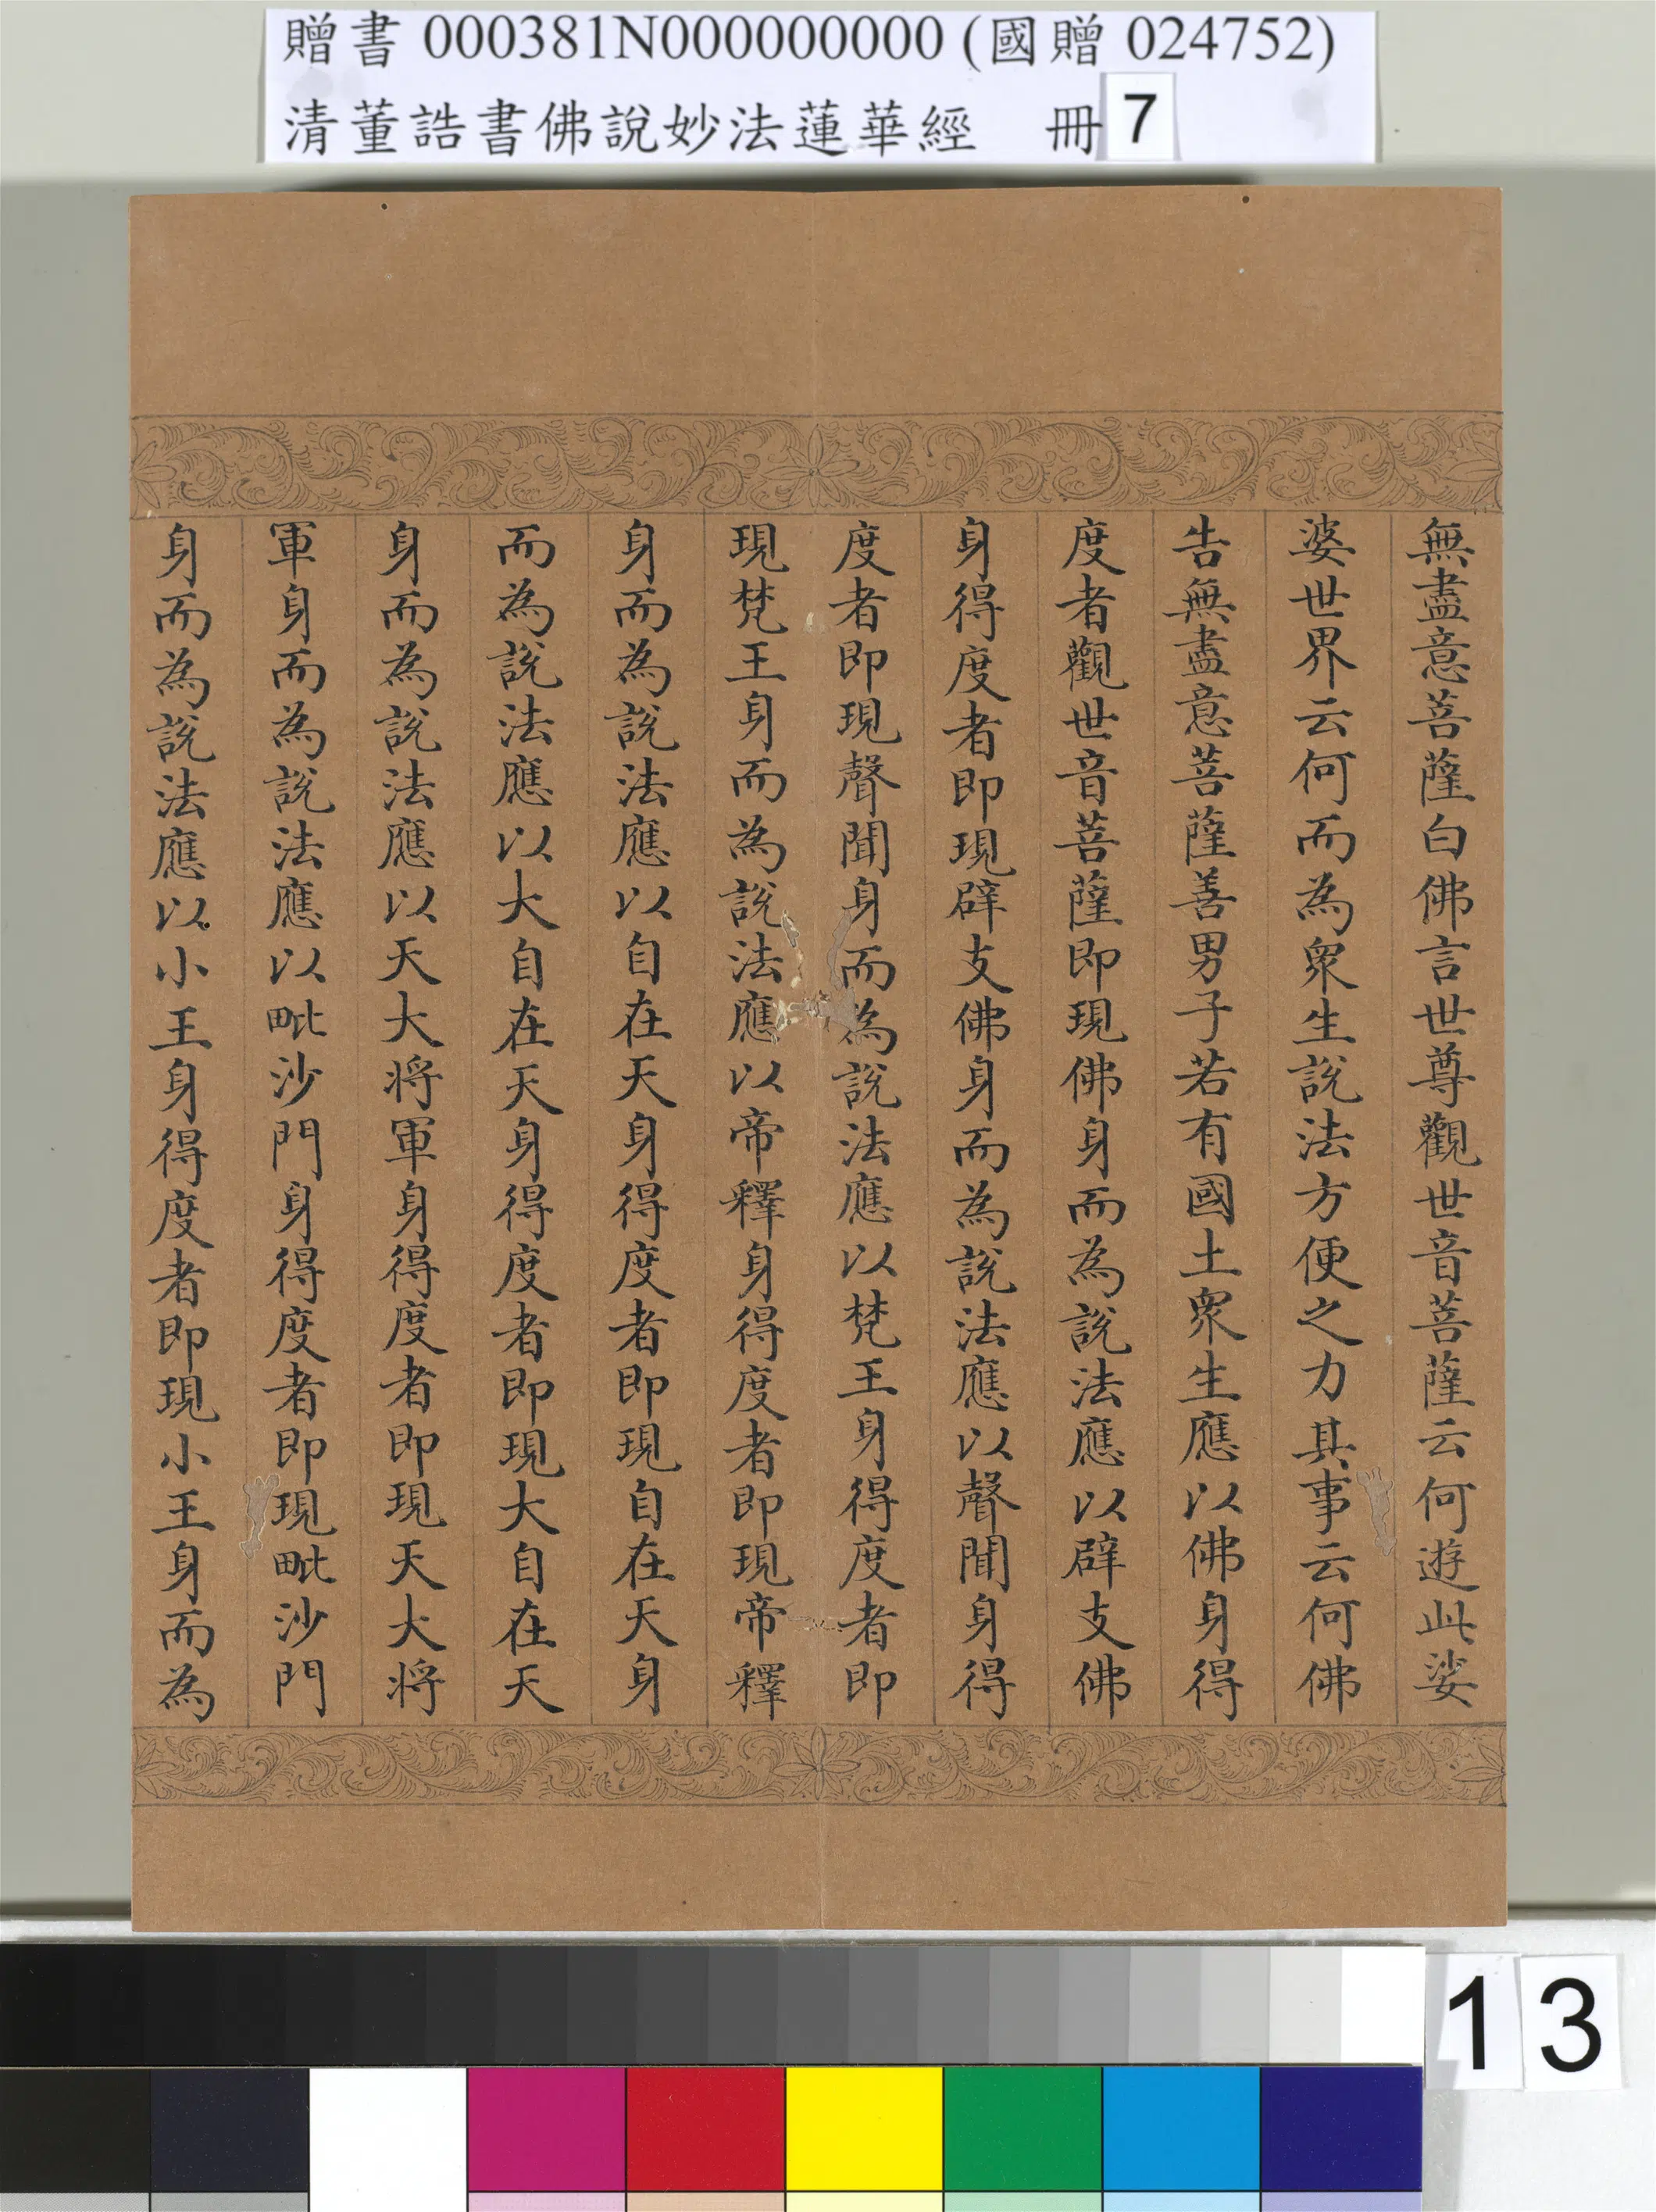 贈書 000381N000000000 (國贈 024752)
清董誥書佛說妙法蓮華經 冊 7
無盡意菩薩白佛言世尊觀世音菩薩云何遊此娑
婆世界云何而為眾生說法方便之力其事云何佛
告無盡意菩薩善男子若有國土眾生應以佛身得
度者觀世音菩薩即現佛身而為說法應以辟支佛
身得度者即現辟支佛身而為說法應以聲聞身得
度者即現聲聞身而為說法應以梵王身得度者即
現梵王身而為說法應以帝釋身得度者即現帝釋
身而為說法應以自在天身得度者即現自在天身
而為說法應以大自在天身得度者即現大自在天
身而為說法應以天大將軍身得度者即現天大將
軍身而為說法應以毗沙門身得度者即現毗沙門
身而為說法應以小王身得度者即現小王身而為
13